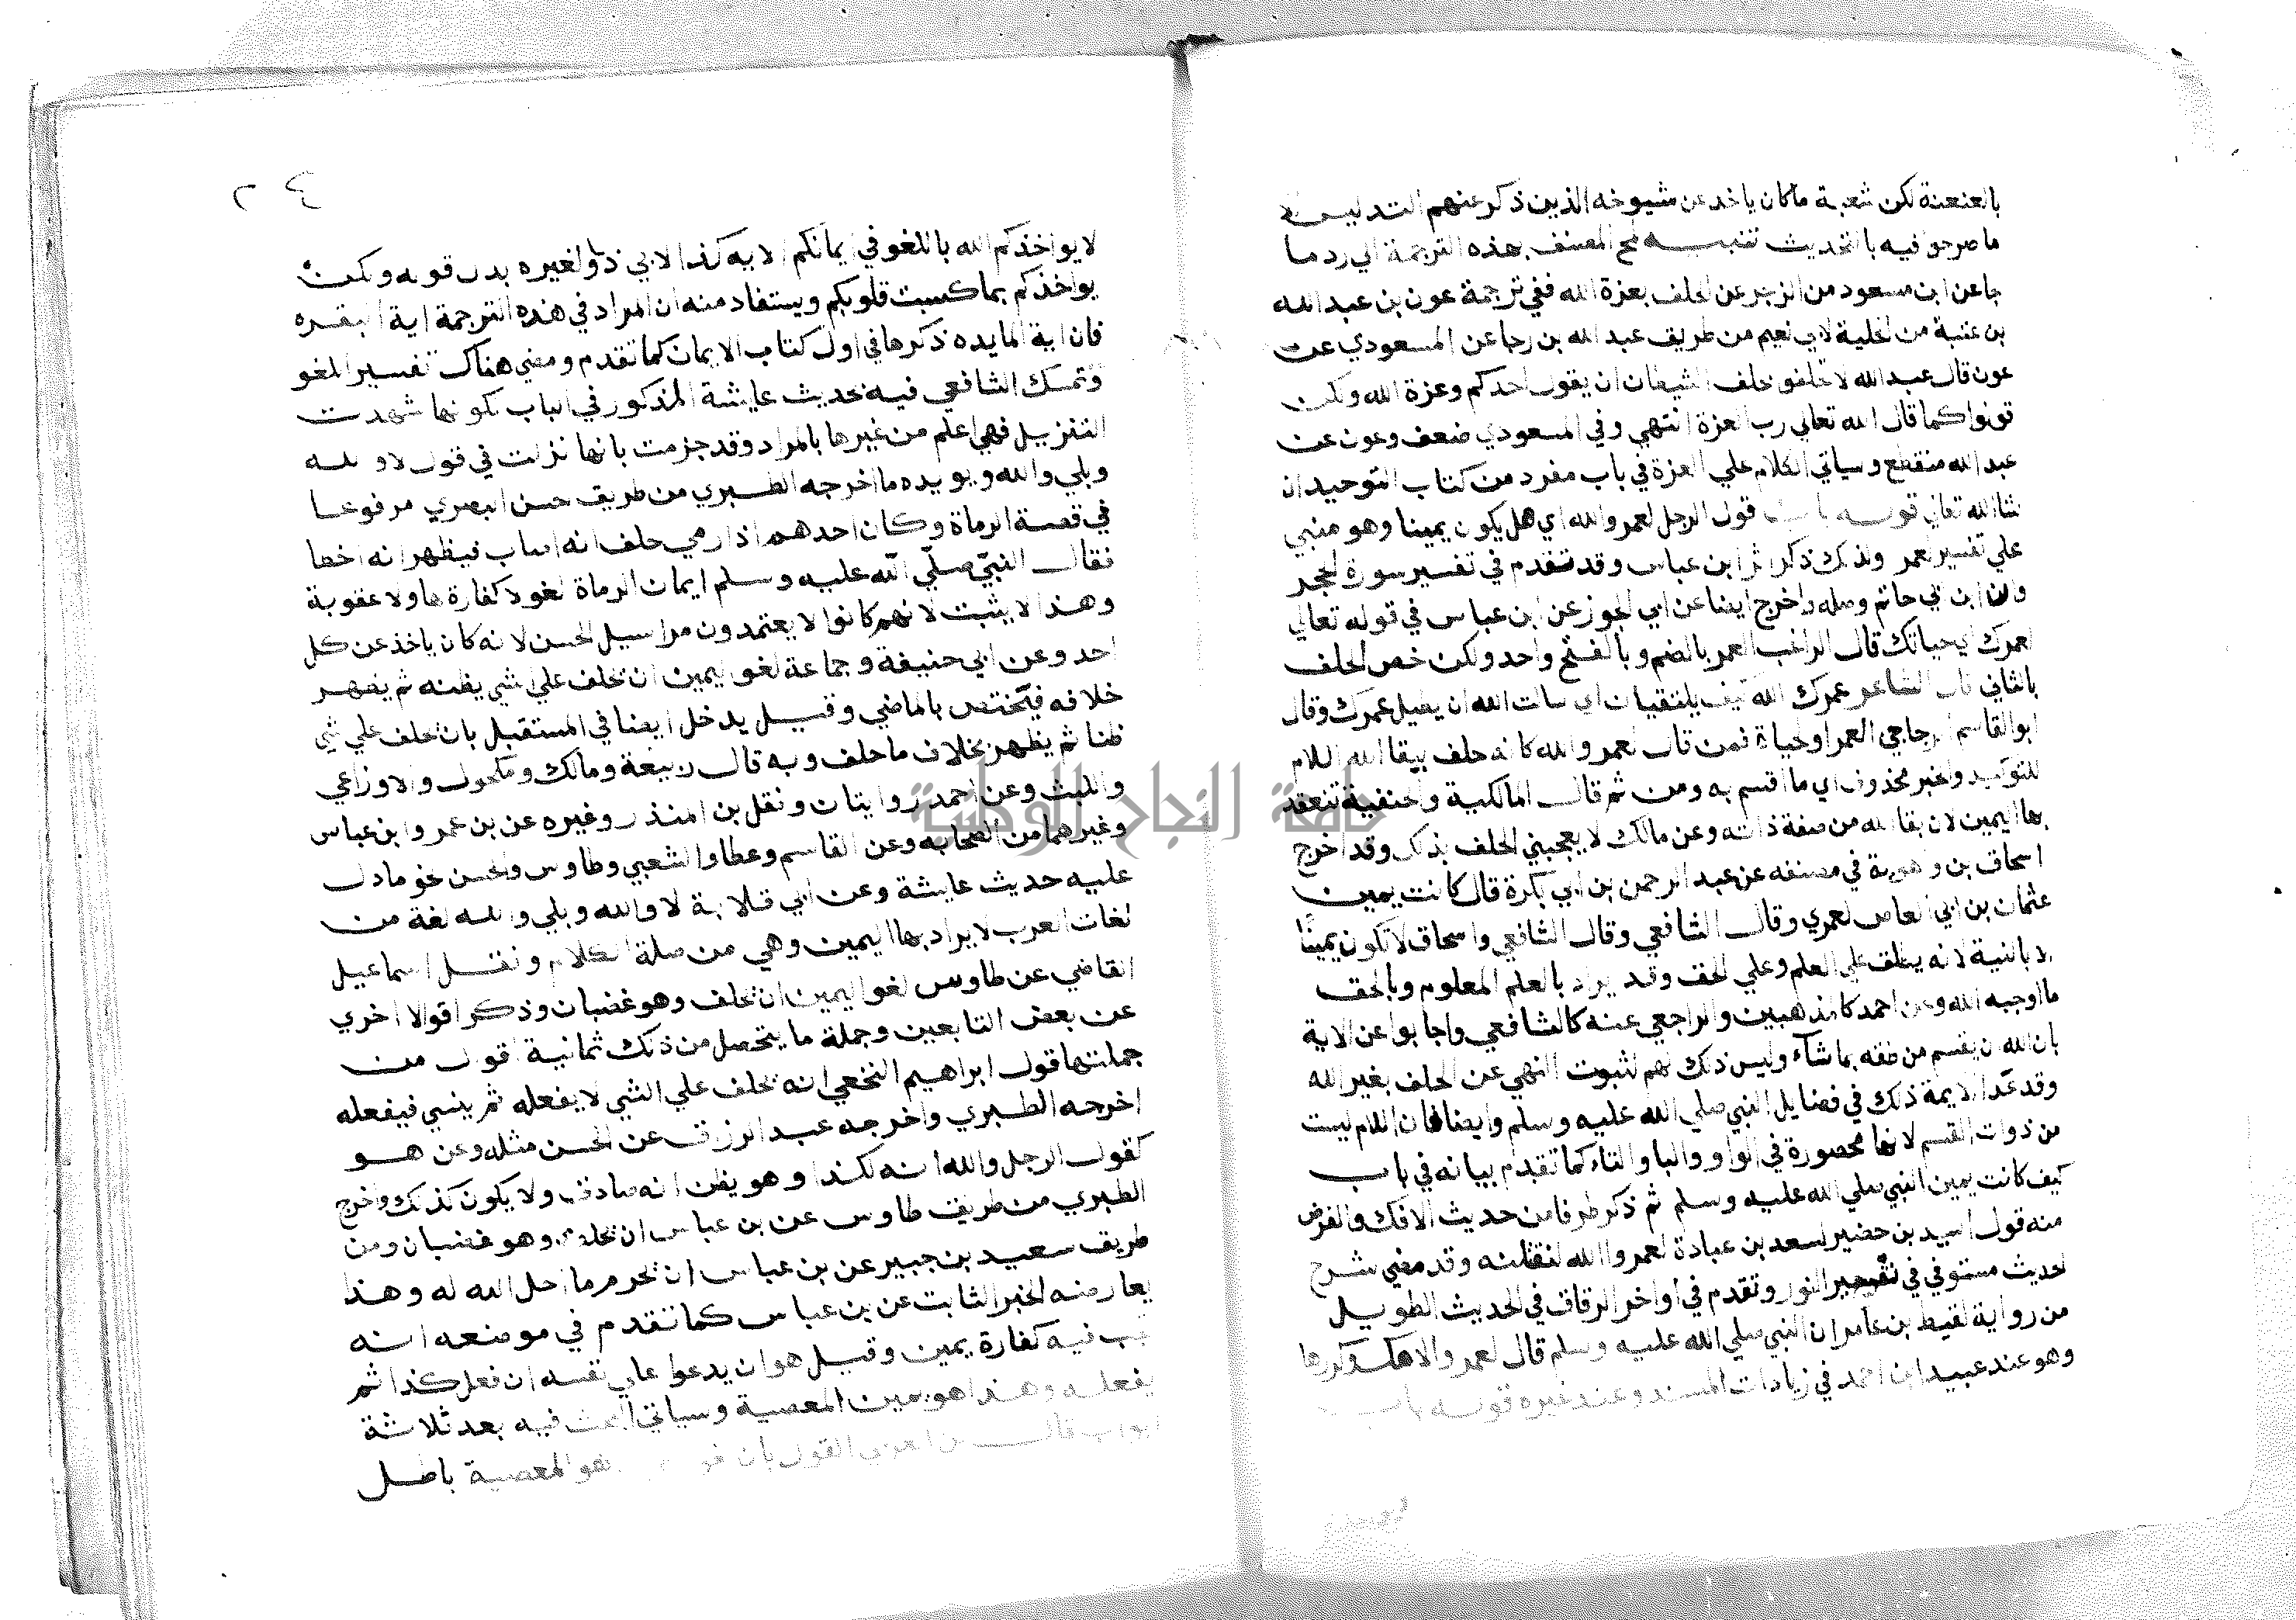 بالعنعنة لكن شعبة ما كان ياخد عن شيوخه الذين ذكر عنهم التدليس الا
ما صرحوا فيه بالتحديث تنبيه لمح المصنف بهذه الترجمة الي رد ما
جا عن ابن مسعود من الزجر عن الحلف بعزة الله ففي ترجمة عون بن عبد الله
بن عتبة من الحلية لابي نعيم من طريف عبد الله بن رجا عن المسعودي عن
عون قال عبد الله لا تحلفوا بحلف الشيطان ان يقول احدكم وعزة الله ولكن
قولوا كما قال الله تعالي رب العزة انتهي وفي المسعودي ضعف وعون عن
عبد الله منقطع وسياتي الكلام علي العزة في باب مفرد من كتاب التوحيد ان
شا الله تعالي قوله باب قول الرجل لعمر والله اي هل يكون يمينا وهو مبني
علي تفسير لعمر ولذلك ذكر اثر ابن عباس وقد تقدم في تفسير سورة الحجر
وان ابن ابي حاتم وصله واخرج ايضا عن ابي الجوز عن ابن عباس في قوله تعالي
لعمرك اي حياتك قال الراغب العمر بالضم وبالفتح واحد ولكن خص الحلف
بالثاني قال الشاعر عمرك الله كيف يلتقيان اي سالت الله ان يطيل عمرك وقال
ابو القاسم الزجاجي العمر الحياة فمن قال لعمر والله كانه حلف ببقا الله اللام
للتوكيد والخبر محذوف اي ما اقسم به ومن ثم قال المالكية والحنفية تنعقد
بها اليمين لان بقا الله من صفة ذاته وعن مالك لا يعجبني الحلف بذلك وقد اخرج
اسحاق بن وهوية في مصنفه عن عبد الرحمن بن ابي بكرة قال كانت يمين
عثمان بن ابي العاص لعمري وقال الشافعي وقال الشافعي واسحاق لا تكون يمينًا
الا بالنية لانه يطلف علي العلم وعلي الحف وقد يراد بالعلم المعلوم وبالحف
ما اوجبه الله وعن احمد كالمذهبين والراجعي عنه كالشافعي واجابوا عن الاية
بان الله ان يقسم من خلقه بما شآء وليس ذلك لهم لثبوت النهي عن الحلف بغير الله
وقد عّد الايمة ذلك في فضايل النبي صلي الله عليه وسلم وايضا فان اللام ليست
من ذوات القسم لانها محصورة في الواو والبا والتاء كما تقدم بيانه في باب
كيف كانت يمين النبي صلي الله عليه وسلم ثم ذكر طرفا من حديث الافك والغرض
منه قول اسيد بن حضير لسعد بن عبادة لعمر والله لنقتلنه وقد مضي شرح
الحديث مستوفي في تفسير النور وتقدم في اواخر الرقاق في الحديث الطويل
من رواية لقيط بن عامر ان النبي صلي الله عليه وسلم قال لعمر والاهك وكررها
وهو عند عبيد ابن احمد في زيادات المسند وعند غيره قوله باب
٢٤
لا يواخذكم الله باللغو في ايمانكم الايه كذا لابي ذر ولغيره بدل قوله ولكن
يواخذكم بما كسبت قلوبكم ويستفاد منه ان المراد في هذه الترجمة اية البقره
فان اية المايده ذكرها في اول كتاب الايمان كما تقدم ومضي هناك تفسير اللغو
وتمسك الشافعي فيه بحديث عايشة المذكور في الباب لكونها شهدت
التنزيل فهي اعلم من غيرها بالمراد وقد جزمت بانها نزلت في قول لا والله
وبلي والله ويويده ما اخرجه الطبري من طريف حسن البصري مرفوعا
في قصة الرماة وكان احدهم اذا رمي حلف انه اصاب فيظهر انه اخطا
فقال النبيّ صلّي الله عليه وسلم ايمان الرماة لغو لا كفارة لها ولا عقوبة
وهذا لا يثبت لانهم كانوا لا يعتمدون مراسيل الحسن لانه كان ياخذ عن كل
احد وعن ابي حنيفة وجماعة لغو اليمين ان تحلف علي شي يظنه ثم يظهر
خلافه فيختص بالماضي وقيل يدخل ايضا في المستقبل بان تحلف علي شي
ظنا ثم يظهر بخلاف ما حلف وبه قال ربيعة ومالك ومكحول والاوزاعي
والليث وعن احمد روايتان ونقل بن المنذر وغيره عن بن عمر وابن عباس
وغيرهما من الصحابه وعن القاسم وعطا والشعبي وطاوس والحسن نحو ما دل
عليه حديث عايشة وعن ابي قلابة لا والله وبلي والله لغة من
لغات العرب لا يراد بها اليمين وهي من صلة الكلام ونقل اسماعيل
القاضي عن طاوس لغو اليمين ان تحلف وهو غضبان وذكر اقوالا اخري
عن بعض التابعين وجملة ما يتحصل من ذلك ثمانية اقول من
جملتها قول ابراهيم النخعي انه يحلف علي الشي لا يفعله ثم ينسي فيفعله
اخرجه الطبري واخرجه عبد الرزق عن الحسن مثله وعن هو
كقول الرجل والله انه لكذا وهو يظن انه صادق ولا يكون كذلك واخرج
الطبري من طريف طاوس عن بن عباس ان تحلف وهو غضبان ومن
طريف سعيد بن جبير عن بن عباس ان تحرم ما احل الله له وهذا
يعارضه الخبر الثابت عن بن عباس كما تقدم في موضعه انه
تجب فيه كفارة يمين وقيل هو ان يدعوا علي نفسه ان فعل كذا ثم
يفعله وهذا هو يمين المعصية وسياتي البحث فيه بعد ثلاثة
ابواب قال بن العربي القول بان لغو المعصية باطل
جامعة النجاح الوطنية